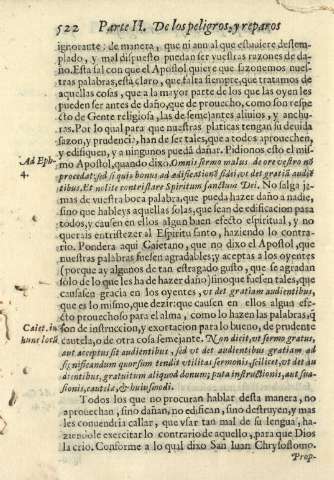 522 Parte II. De los peligros, y reparos
ignorante: de manera, que ni aun al que estuviere destem-
plado, y mal dispuesto puedan ser vuestras razones de da-
ño. Esta sal con que el Apostol quiere que sazonemos nues-
tras palabras, està claro, que falta siempre, que tratamos de
aquellas cosas, que a la mayor parte de los que las oyen les
pueden ser antes de daño, que de prouecho, como son respe
cto de Gente religiosa, las de semejantes aliuios, y anchu-
ras. Por lo qual para que nuestras platicas tengan su deuida
sazon, y prudencia, han de ser tales, que a todos aprouechen,
y edifiquen, y a ningunos pueda dañar. Pidionos esto el mis-
Ad Eph. mo Apostol, quando dixo. Omnis sermo malus de ore vestro nõ
4. procedat: sed si quis bonus ad ædificationẽ fidei, vt det gratiã audiẽ
tibus. Et nolite contristare Spiritum sanctum Dei. No salga ja-
mas de vuestra boca palabra, que pueda hazer daño a nadie,
sino que hableys aquellas solas, que sean de edificacion para
todos, y causen en ellos algun buen efecto espiritual, y no
querais entristezer al Espiritu santo, haziendo lo contra-
rio. Pondera aqui Caietano, que no dixo el Apostol, que
nuestras palabras fuesen agradables, y aceptas a los oyentes
(porque ay algunos de tan estragado gusto, que se agradan
solo de lo que les ha de hazer daño) sino que fuesen tales, que
causasen gracia en los oyentes, vt det gratiam audientibus,
que es lo mismo, que dezir que causen en ellos algun efe-
cto prouechoso para el alma, como lo hazen las palabras, q̃
Caiet. in son de instruccion, y exortacion para lo bueno, de prudente
hunc locũ cautela, o de otra cosa semejante. Non dicit, vt sermo gratus,
aut acceptus sit audientibus, sed vt det audientibus gratiam ad
significandum quorsum tendit vtilitas sermonis, scilicet, vt det au
dientibus, gratuitum aliquod donum; puta instructionis, aut sua-
sionis, cautelæ, & huiusmodi.
Todos los que no procuran hablar desta manera, no
aprouechan, sino dañan, no edifican, sino destruyen, y mas
les conuendria callar, que vsar tan mal de su lengua, ha-
ziendole exercitar lo contrario de aquello, para que Dios
la crio. Conforme a lo qual dixo San Iuan Chrysostomo.
Prop-